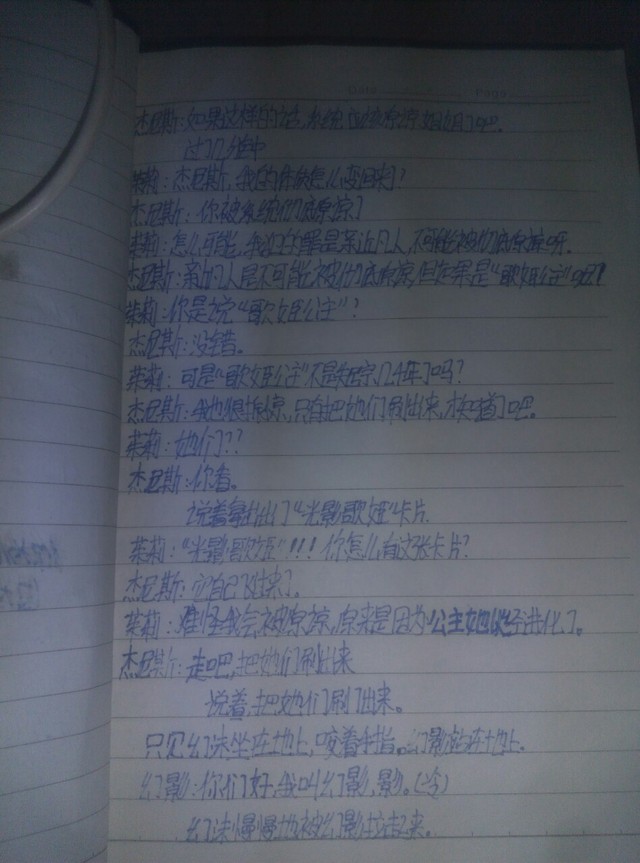 Date Page
杰尼斯:如果这样的话,系统应该原谅姐姐了吧。
过了几分钟
茱莉:杰尼斯,我的件做怎么变回来了?
杰尼斯:你被系统彻底原谅了
茱莉:怎么可能,我犯的罪是亲近凡人,不可能被彻底原谅呀。
杰尼斯:亲近凡人是不可能被彻底原谅,但如果是“歌姬公主”呢?
茱莉:你是说“歌姬公主”?
杰尼斯:没错。
茱莉:可是“歌姬公主”不是缺席几十年了吗?
杰尼斯:我也很惊讶,只有把她们刷出来,才知道了吧。
茱莉:她们??
杰尼斯:你看。
说着拿出了“光影歌姬”卡片
茱莉:“光影歌姬”!!!你怎么有这张卡片?
杰尼斯:它自己飞出来了。
茱莉:难怪我会被原谅,原来是因为公主她已经进化了。
杰尼斯:走吧,把她们刷出来
说着,把她们刷了出来。
只见幻沫坐在地上,咬着手指。幻影站在地上。
幻影:你们好,我叫幻影,影。(冷)
幻沫慢慢地被幻影拉起来。